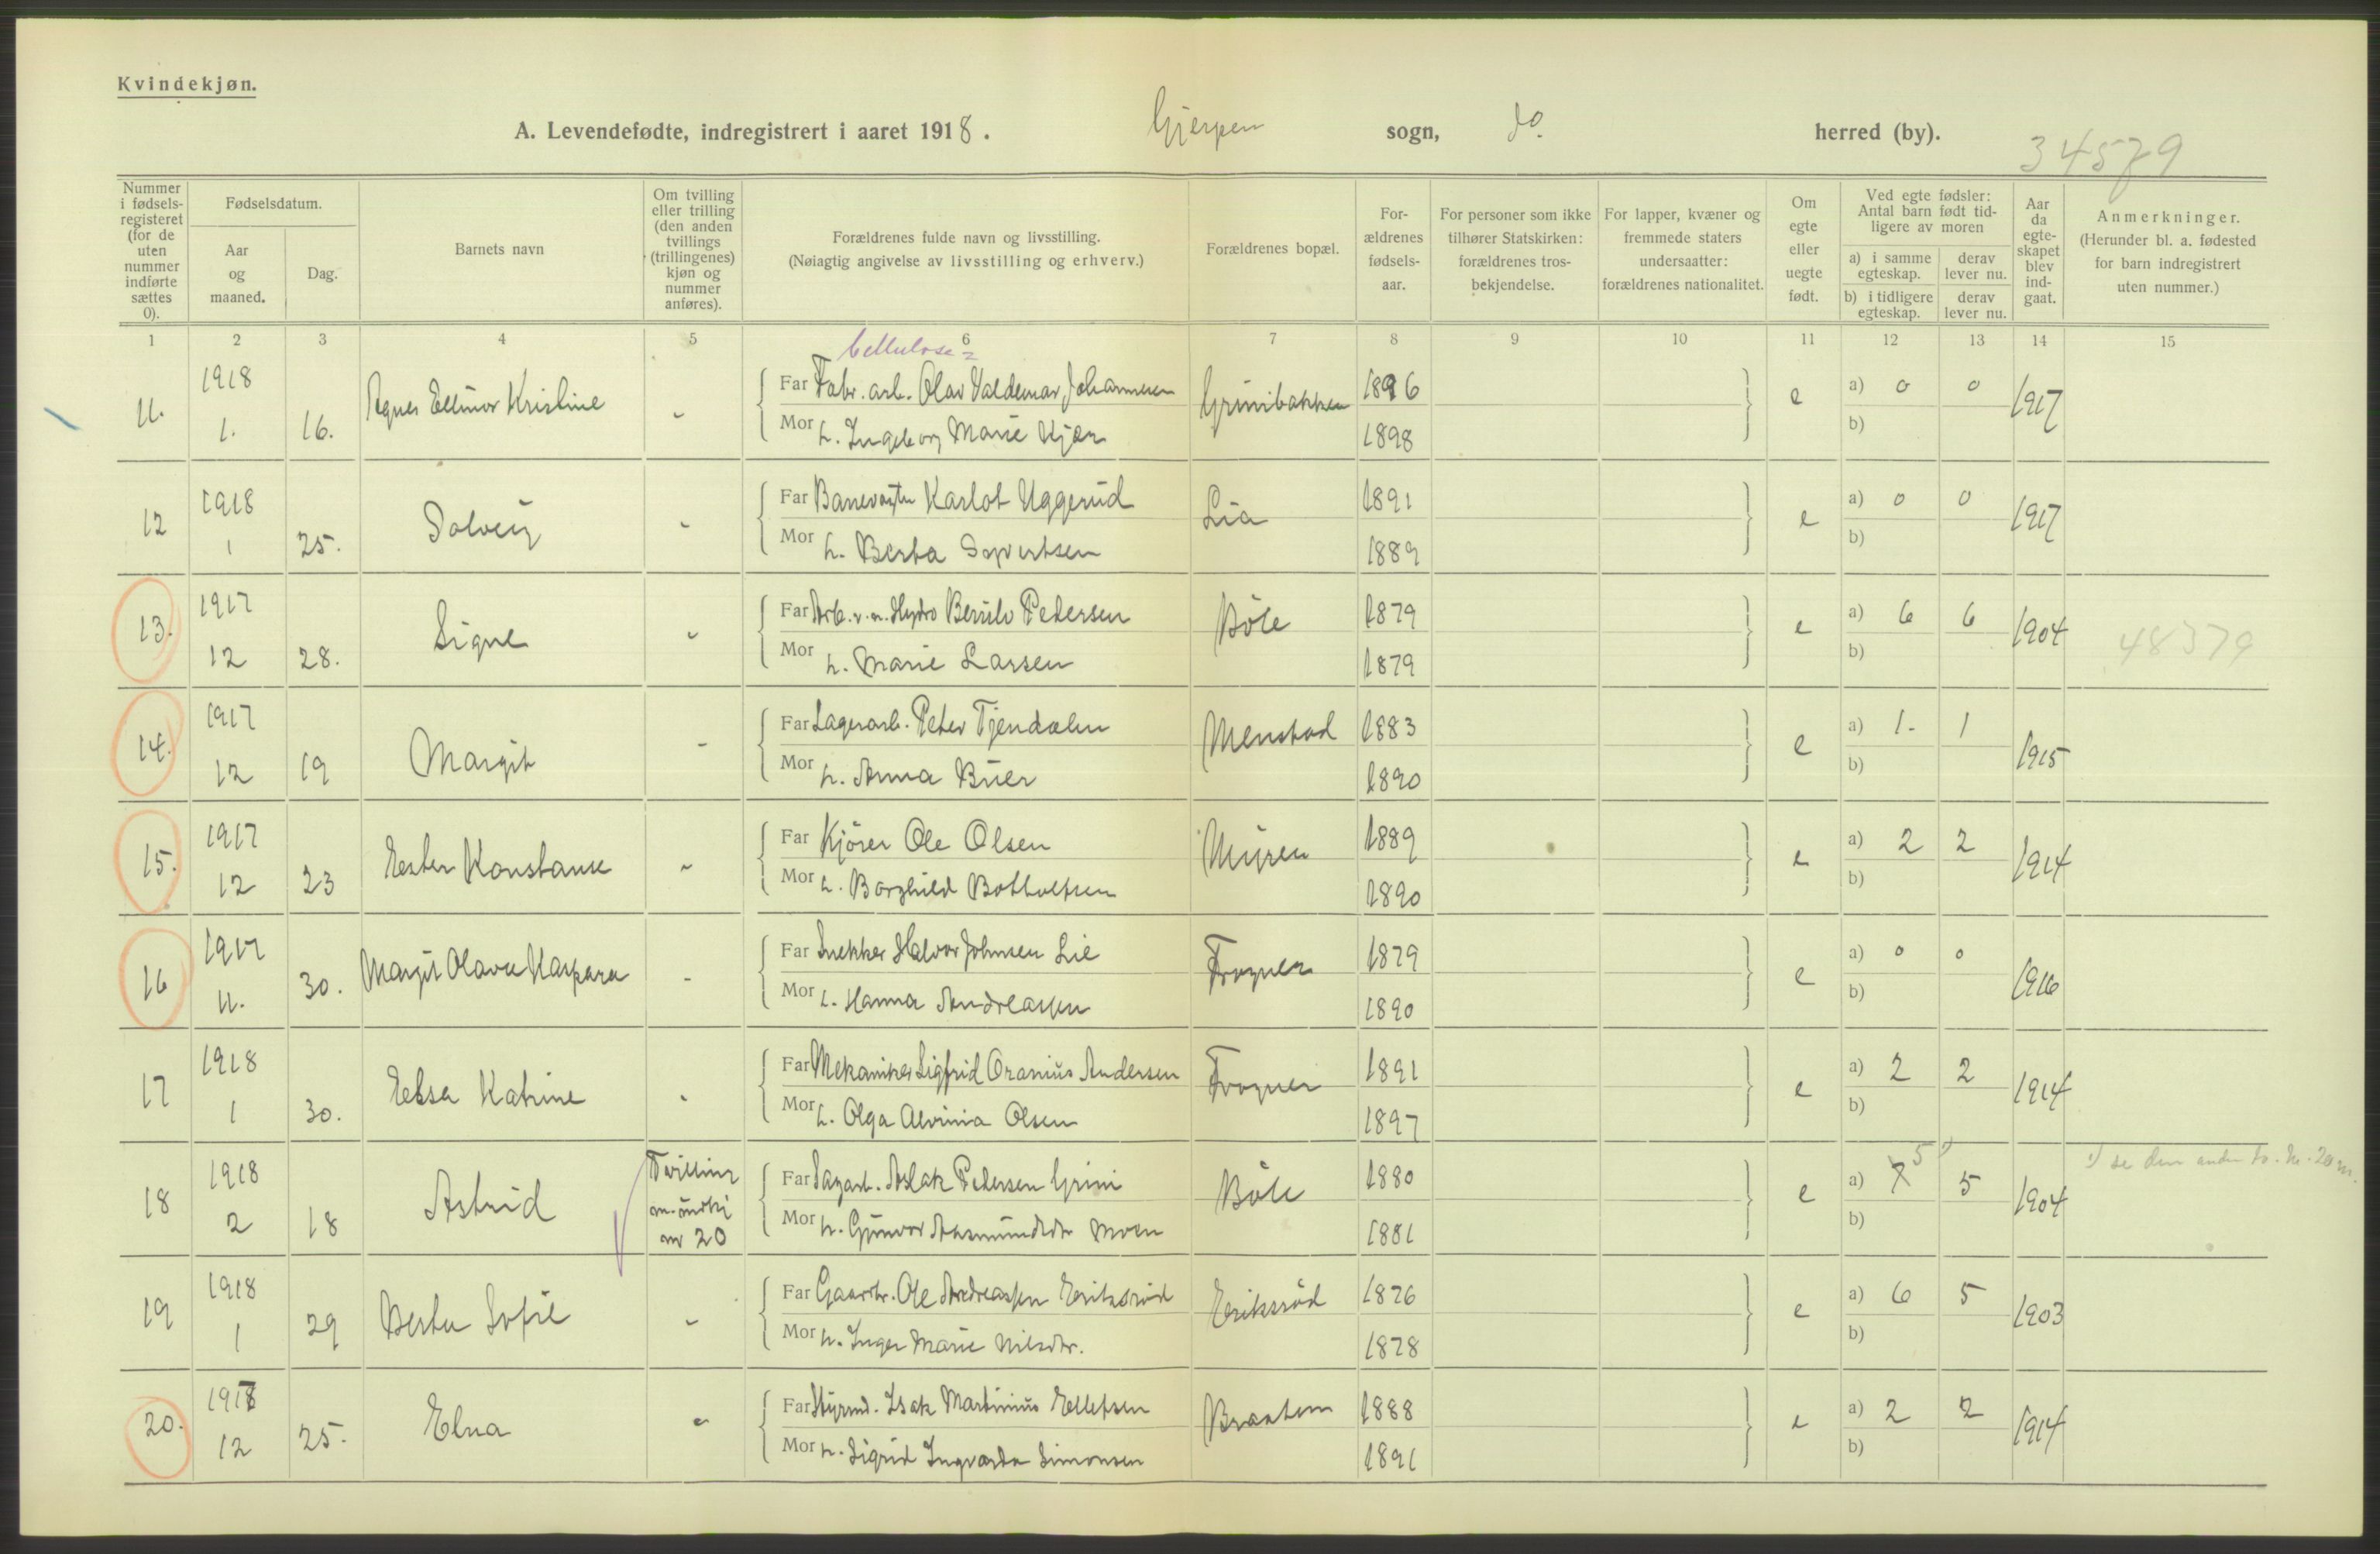 Kvindekjøn.
A. Levendefødte, indregistrert i aaret 1918. Gjerpen sogn, do. herred (by).
34579
Nummer i fødsels-registeret (for de uten nummer indførte sættes 0).
Fødselsdatum.
Aar og maaned.
Dag.
Barnets navn
Om tvilling eller trilling (den anden tvillings (trillingenes) kjøn og nummer anføres).
Forældrenes fulde navn og livsstilling.
(Nøiagtig angivelse av livsstilling og erhverv.)
Forældrenes bopæl.
For-ældrenes fødsels-aar.
For personer som ikke tilhører Statskirken: forældrenes tros-bekjendelse.
For lapper, kvæner og fremmede staters undersaatter: forældrenes nationalitet.
Om egte eller uegte født.
Ved egte fødsler: Antal barn født tid-ligere av moren
a) i samme egteskap.
derav lever nu.
b) i tidligere egteskap.
derav lever nu.
Aar da egte-skapet blev ind-gaat.
Anmerkninger.
(Herunder bl. a. fødested for barn indregistrert uten nummer.)
1 2 3 4 5 6 7 8 9 10 11 12 13 14 15
Cellulose=
11. 1918 1. 16. Agnes Ellinor Kristine - Far Fabr. arb. Olav Valdemar Johannesen Grinibakken 1896 e a) 0 0 1917
Mor h. Ingeborg Marie Kjær 1898 b)
12 1918 1 25. Solveig - Far Banevogter Karlot Uggerud Lia 1891 e a) 0 0 1917
Mor h. Berta Syvertsen 1889 b)
13. 1917 12 28. Signe - Far Arb. v. n. Hydro Petersen Böle 1879 e a) 6 6 1904 48379
Mor h. Marie Larsen 1879 b)
14. 1917 12 19 Margit - Far Lagerarb. Peter Tjendalen Menstad 1883 e a) 1. 1 1915
Mor h. Anna Buer 1890 b)
15. 1917 12 23 Ester Konstanse - Far Kjörer Ole Olsen Myren 1889 e a) 2 2 1914
Mor h. Borghild Bottolfsen 1890 b)
16 1917 11. 30. Margit Olava Kaspara - Far Snekker Halvor Johnsen Lie Frogner 1879 e a) 0 0 1916
Mor h. Hanna Andreassen 1890 b)
17 1918 1 30. Elsa Katrine - Far Mekaniker Sigfrid Oranius Andersen Frogner 1891 e a) 2 2 1914
Mor h. Olga Alvinia Olsen 1897 b)
18 1918 2 18 Astrid Tvilling nr 20 Far Sagarb. Aslak Petersen Grini Böle 1880 e a) 7 5 1) 5 1904 1) se den anden fo. Nr. 20 m.
Mor h. Gunvor Aasmundsdtr Moen 1881 b)
19 1918 1 29 Berta Sofie - Far Gaardbr. Ole Andreassen Eriksröd Eriksröd 1876 e a) 6 5 1903
Mor h. Inger Marie Nilsdtr. 1878 b)
20. 1917 12 25. Elna - Far Styrmd. Isak Martinius Ellefsen Braaten 1888 e a) 2 2 1914
Mor h. Sigrid Ingvarda Simonsen 1891 b)